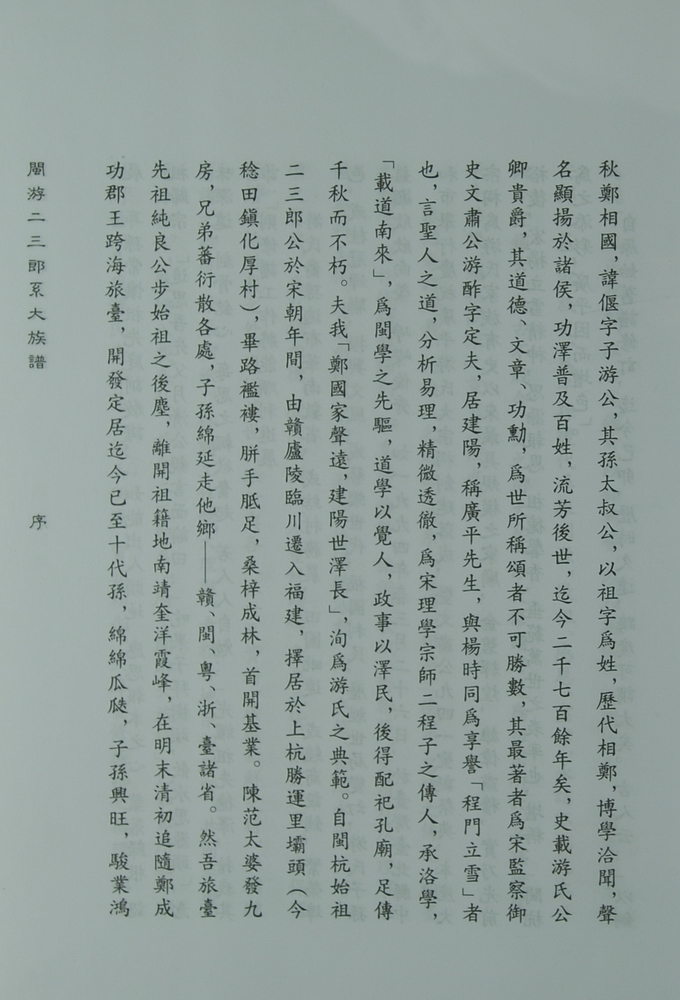 秋鄭相國，諱偃字子游公，其孫太叔公，以祖字爲姓，歷代相鄭，博學洽聞，聲
名顯揚於諸侯，功澤普及百姓，流芳後世，迄今二千七百餘年矣，史載游氏公
卿貴爵，其道德、文章、功勳，爲世所稱頌者不可勝數，其最著者爲宋監察御
史文肅公游酢字定夫，居建陽，稱廣平先生，與楊時同爲享譽「程門立雪」者
也，言聖人之道，分析易理，精微透徹，爲宋理學宗師二程子之傳人，承洛學，
「載道南來」，爲閩學之先驅，道學以覺人，政事以澤民，後得配祀孔廟，足傳
千秋而不朽。夫我「鄭國家聲遠，建陽世澤長」，洵爲游氏之典範。自閩杭始祖
二三郎公於宋朝年間，由贛廬陵臨川遷入福建，擇居於上杭勝運里壩頭（今
稔田鎮化厚村），畢路襤褸，胼手胝足，桑梓成林，首開基業。陳范太婆發九
房，兄弟蕃衍散各處，子孫綿延走他鄉——贛、閩、粵、浙、臺諸省。然吾旅臺
先祖純良公步始祖之後塵，離開祖籍地南靖奎洋霞峰，在明末清初追隨鄭成
功郡王跨海旅臺，開發定居迄今已至十代孫，綿綿瓜瓞，子孫興旺，駿業鴻
閩游二三郎系大族譜　序